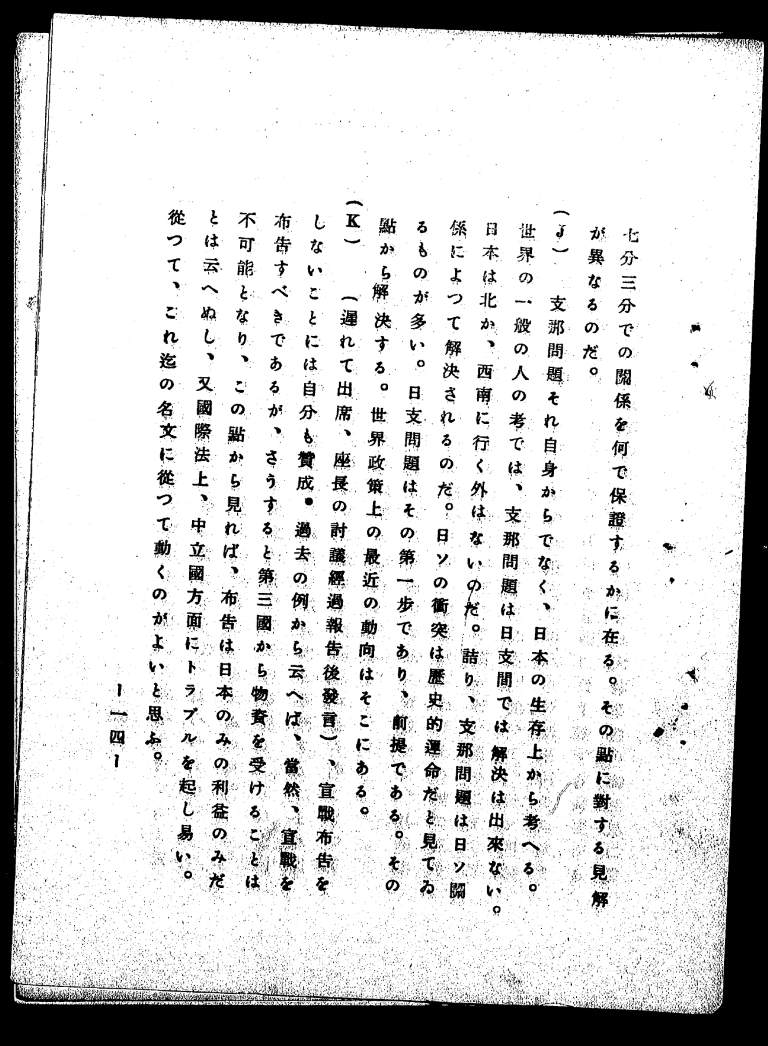 七分三分での關係を何で保證するかに在る。その點に對する見解
が異なるのだ。
(J) 支那問題それ自身からでなく、日本の生存上から考へる。
世界の一般の人の考では、支那問題は日支間では解決は出來ない。
日本は北か、西南に行く外はないのだ。詰り、支那問題は日ソ關
係によつて解決されるのだ。日ソの衝突は歷史的運命だと見てゐ
るものが多い。日支問題はその第一步であり、前提である。その
點から解決する。世界政策上の最近の動向はそこにある。
(K) (遲れて出席、座長の討議經過報告後發言)、宣戰布告を
しないことには自分も賛成。過去の例から云へば、當然、宣戰を
布告すべきであるが、さうすると第三國から物資を受けることは
不可能となり、この點から見れば、布告は日本のみの利益のみだ
とは云へぬし、又國際法上、中立國方面にトラブルを起し易い。
從つて、これ迄の名文に從つて動くのがよいと思ふ。
ー一四ー